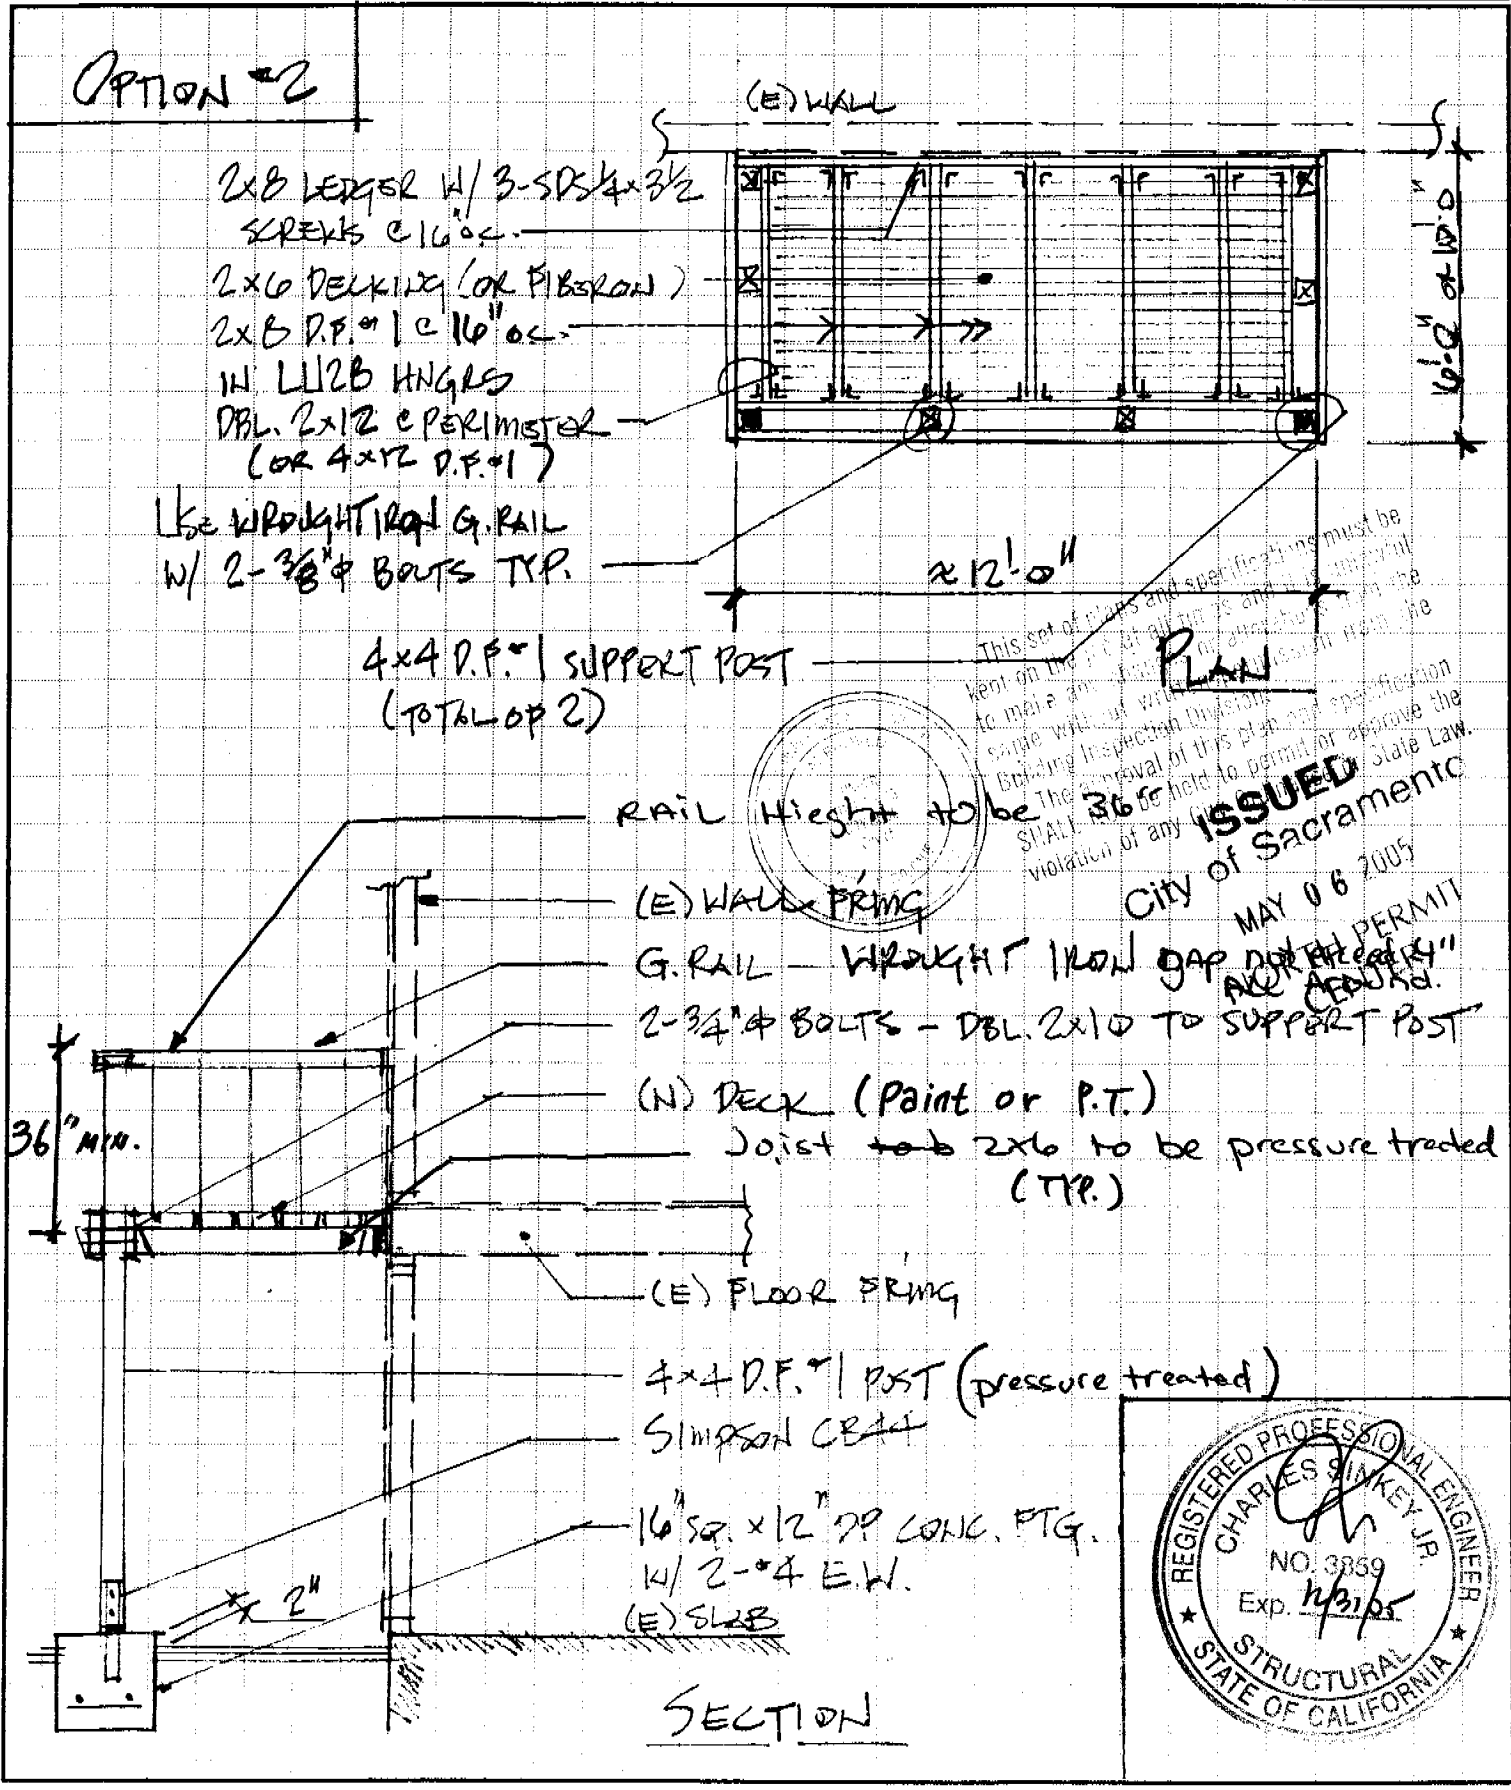 OPTION #2
(E) WALL
2x8 LEDGER W/ 3-SDS 1/4 x 3 1/2
SCREWS @ 16" oc.
2x6 DECKING (OR FIBERON)
2x8 D.F. #1 @ 16" oc.
IN LU28 HNGRS
DBL. 2x12 @ PERIMETER
(OR 4x12 D.F. #1)
USE WROUGHT IRON G. RAIL
W/ 2-3/8"ϕ BOLTS TYP.
4x4 D.F. #1 SUPPORT POST
(TOTAL OF 2)
≈12'-0"
PLAN
This set of plans and specifications must be
kept on the at all times and it is unlawful
to make any alterations from the
same without written permission from the
Building Inspection Division.
The approval of this plan and specification
SHALL be held to permit or approve the
violation of any State Law.
ISSUED
City of Sacramento
MAY 06 2005
NORTH PERMIT
RAIL Hieght to be 36"
(E) WALL FRMG
G. RAIL - WROUGHT IRON gap not 4"
All Around.
2-3/4"ϕ BOLTS - DBL. 2x10 TO SUPPORT POST
(N) DECK (Paint or P.T.)
Joist to b 2x6 to be pressure treated
(TYP.)
36" MIN.
(E) FLOOR FRMG
4x4 D.F. #1 POST (pressure treated)
SIMPSON CB44
16" SQ. x 12" DP CONC. FTG.
W/ 2-#4 E.W.
(E) SLAB
2"
SECTION
REGISTERED PROFESSIONAL ENGINEER
CHARLES SINKEY JR.
NO. 3859
Exp. 12/31/05
STRUCTURAL
STATE OF CALIFORNIA